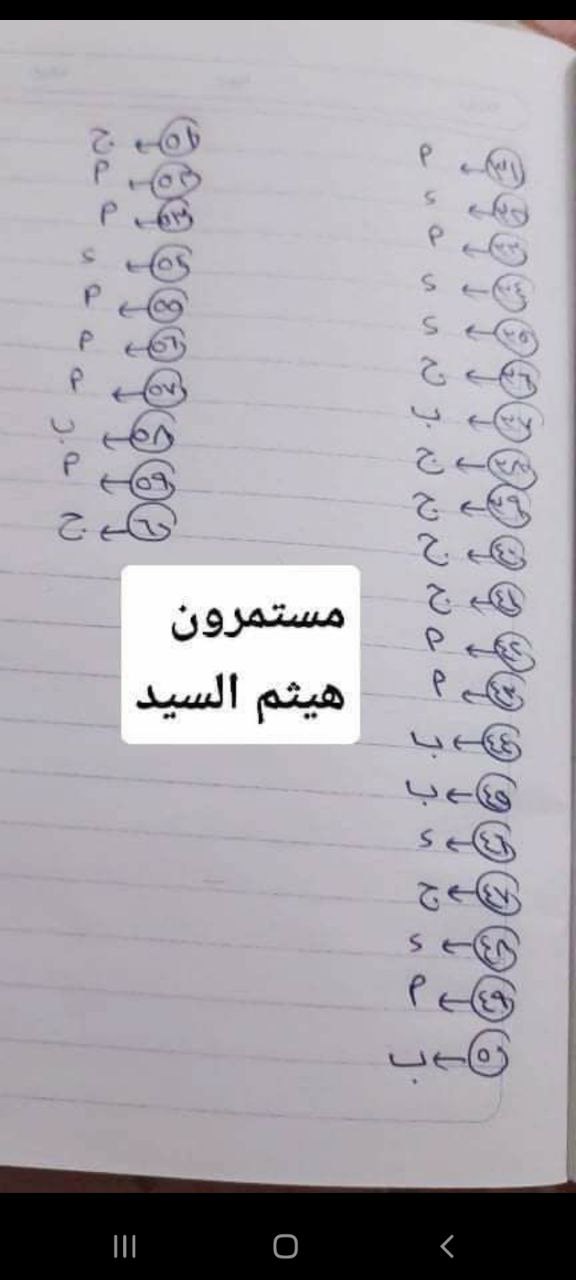 ٣١ ← أ
٣٢ ← د
٣٣ ← أ
٣٤ ← د
٣٥ ← د
٣٦ ← ج
٣٧ ← ب
٣٨ ← ج
٣٩ ← ج
٤٠ ← ج
٤١ ← ج
٤٢ ← أ
٤٣ ← أ
٤٤ ← ب
٤٥ ← ب
٤٦ ← د
٤٧ ← ج
٤٨ ← د
٤٩ ← أ
٥٠ ← ب
٥١ ← ج
٥٢ ← أ
٥٣ ← أ
٥٤ ← د
٥٥ ← أ
٥٦ ← أ
٥٧ ← أ
٥٨ ← ب
٥٩ ← أ
٦٠ ← ج
مستمرون
هيثم السيد